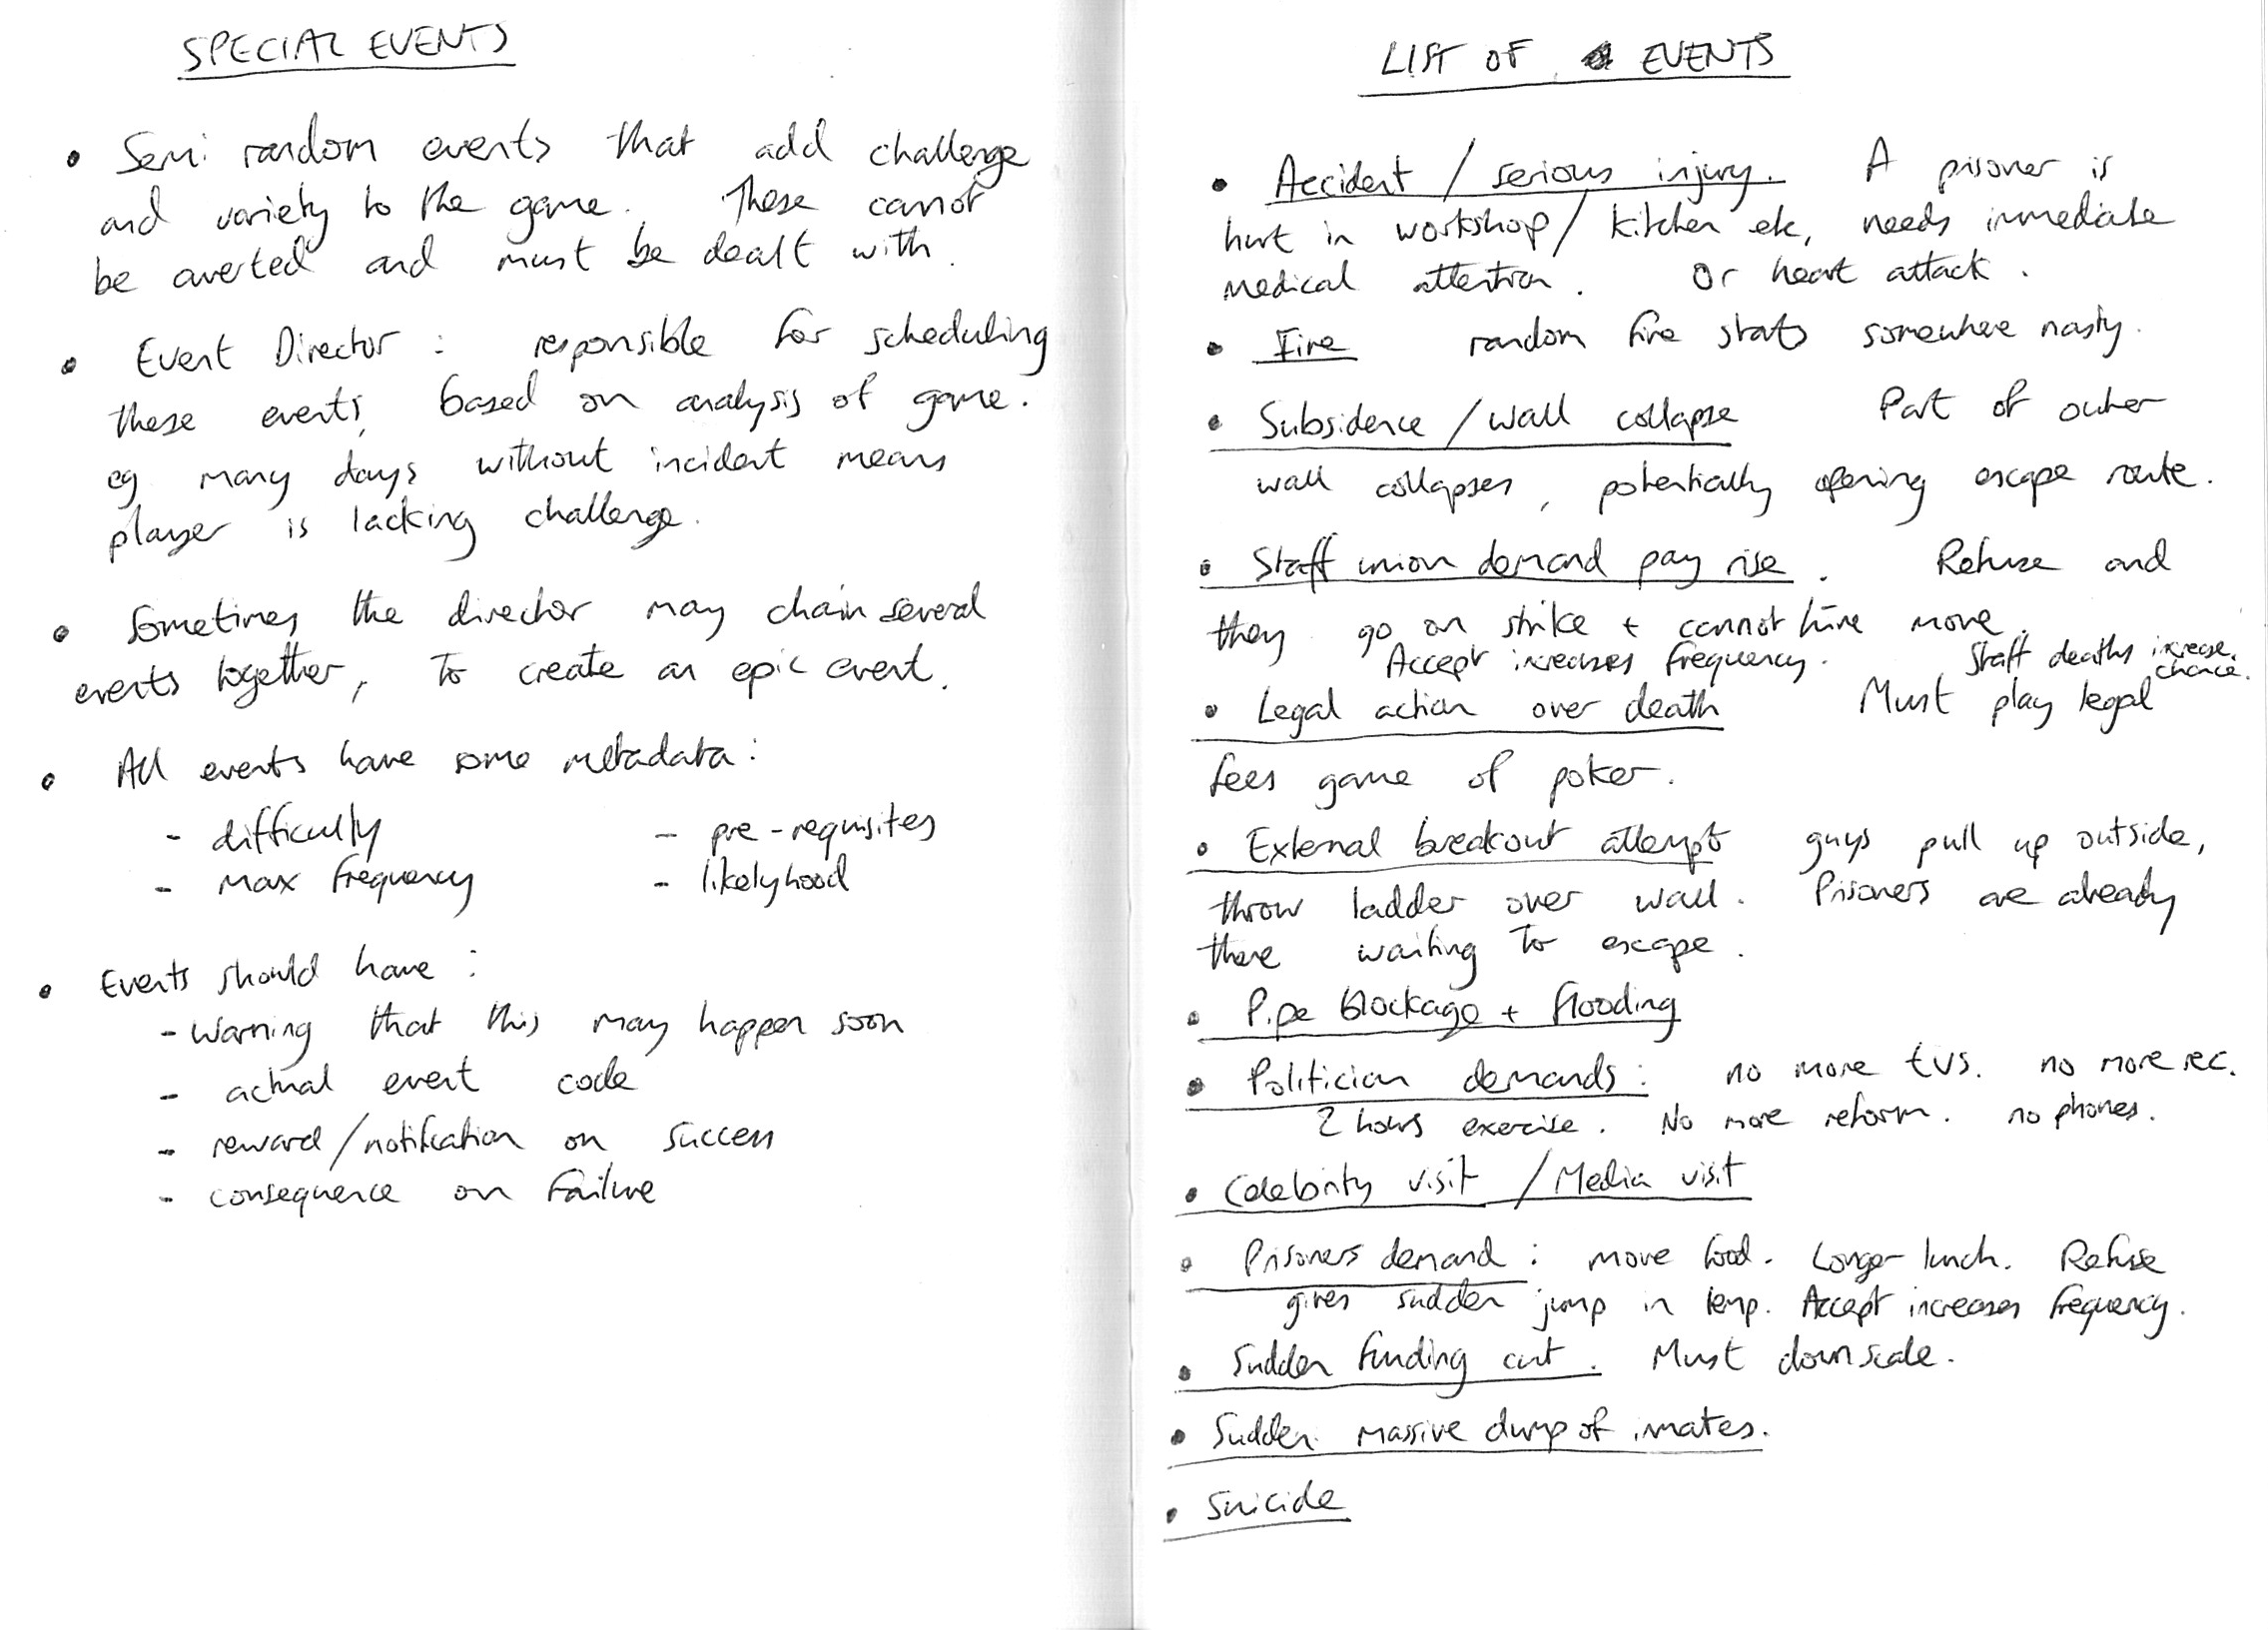 SPECIAL EVENTS
• Semi random events that add challenge
and variety to the game. These cannot
be averted and must be dealt with.
• Event Director : responsible for scheduling
these events, based on analysis of game.
eg many days without incident means
player is lacking challenge.
• Sometimes the director may chain several
events together, to create an epic event.
• All events have some metadata :
- difficulty - pre-requisites
- max frequency - likelyhood
• Events should have :
- warning that this may happen soon
- actual event code
- reward/notification on success
- consequence on failure
LIST OF EVENTS
• Accident / serious injury. A prisoner is
hurt in workshop/kitchen etc, needs immediate
medical attention. Or heart attack.
• Fire random fire starts somewhere nasty.
• Subsidence / wall collapse Part of outer
wall collapses, potentially opening escape route.
• Staff union demand pay rise. Refuse and
they go on strike + cannot hire more.
Accept increases frequency. Staff deaths increase
chance.
• Legal action over death Must play legal
fees game of poker.
• External breakout attempt guys pull up outside,
throw ladder over wall. Prisoners are already
there waiting to escape.
• Pipe blockage + flooding
• Politician demands : no more tvs. no more rec.
2 hours exercise. No more reform. no phones.
• Celebrity visit / Media visit
• Prisoners demand : more food. Longer lunch. Refuse
gives sudden jump in temp. Accept increases frequency.
• Sudden funding cut. Must downscale.
• Sudden massive dump of inmates.
• Suicide